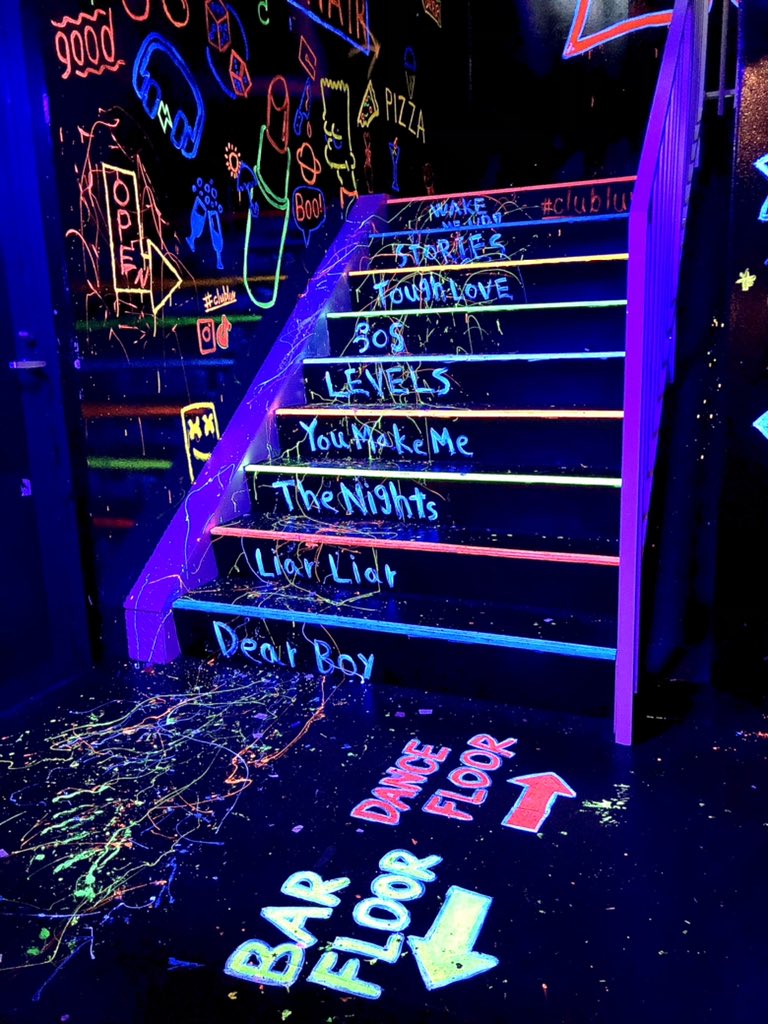 good
HAIR
PIZZA
OPEN
Boo!
#clublu
#clublu
WAKE
ME UP
STORIES
Tough LOVE
SOS
LEVELS
You Make Me
The Nights
Liar Liar
Dear Boy
DANCE
FLOOR
BAR
FLOOR